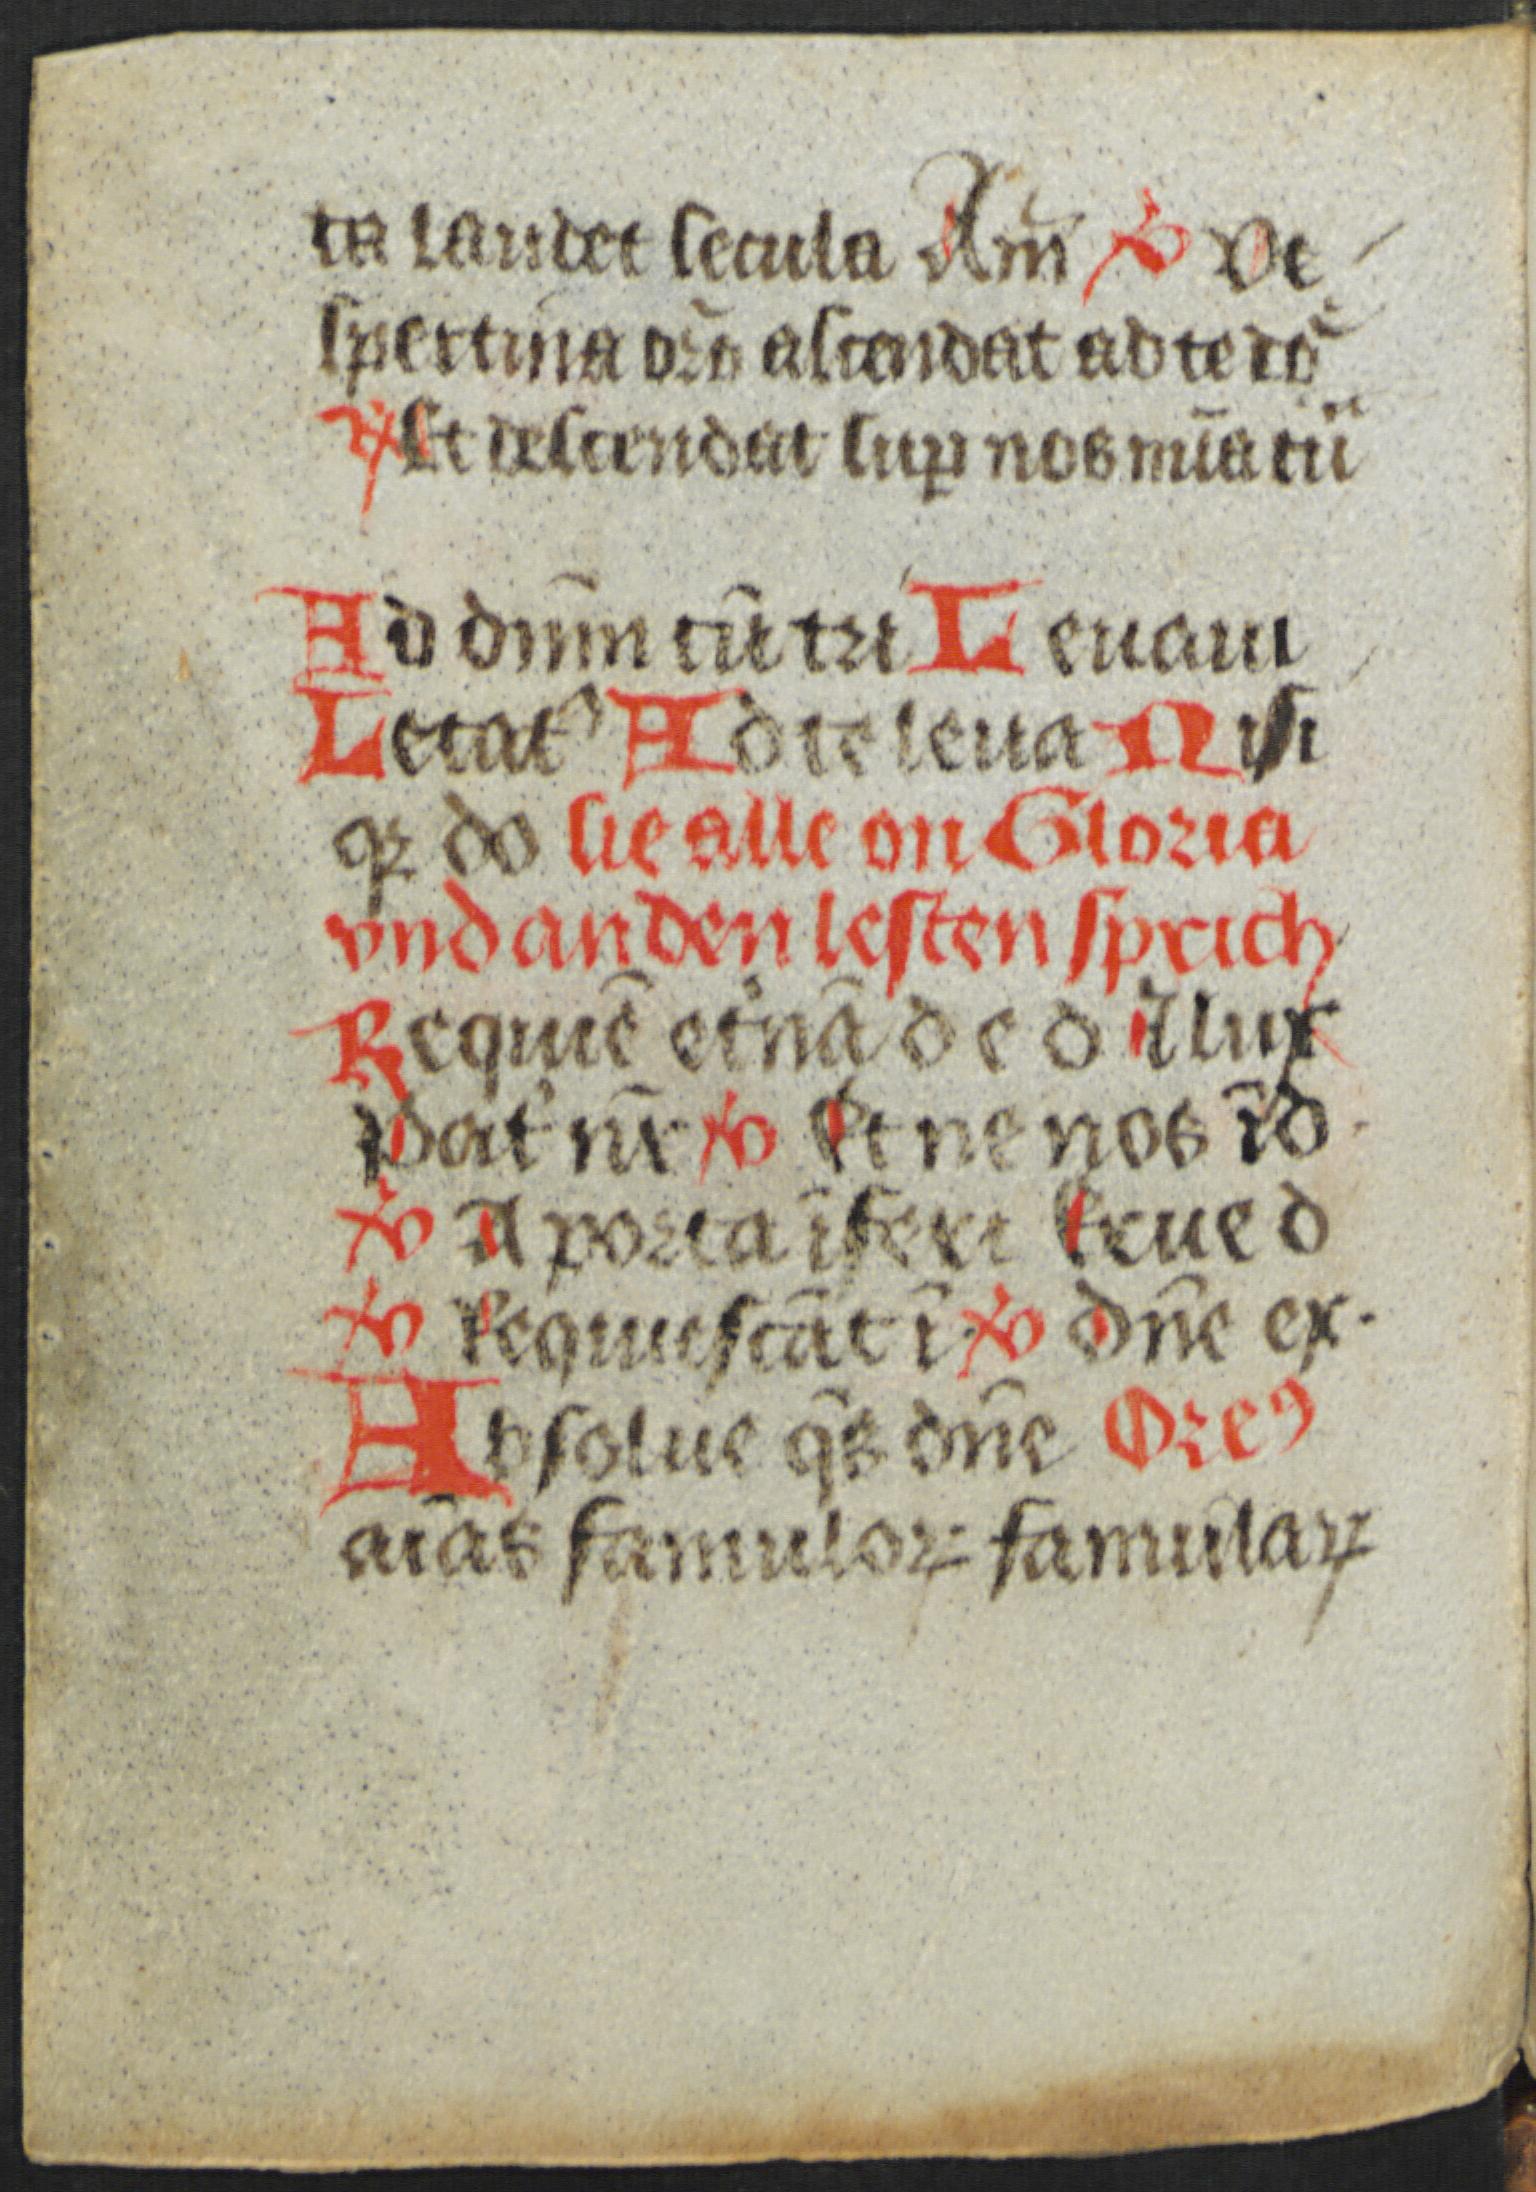 ta laudet secula Am̄ ℣ Ve
spertina or̄o ascendat ad te dō
℟ Et descendat sup nos mīa tū
Ad dn̄m cū tri Leuaui
Letat᷑ Ad te leua Nisi
qr do die alle on Gloria
vnd an den lesten sprich
Requiē et'nā d e d Il lux
Pat' nr̄ ℣ Et ne nos īd
℣ A porta īferi Erue d
℣ Requiescāt ī ℣ dn̄e ex.
Absolue qs̄ dn̄e Oreꝯ
aīas famuloꝝ famulaꝝ